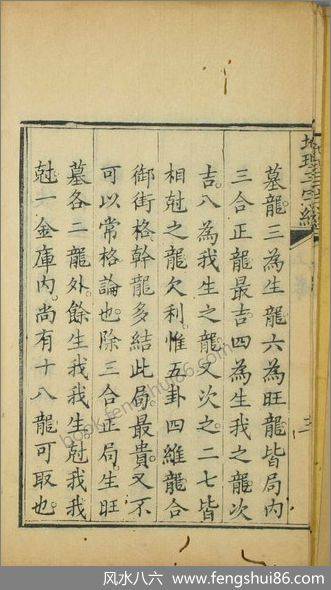 地理正宗經
三
墓龍三為生龍六為旺龍皆局內
三合正龍最吉四為生我之龍次
吉八為我生之龍又次之二七皆
相尅之龍欠利惟五卦四維龍合
御街格幹龍多結此局最貴又不
可以常格論也除三合正局生旺
墓各二龍外餘生我我生尅我我
尅一金庫內尚有十八龍可取也
book.fengshui86.com
风水八六 www.fengshui86.com